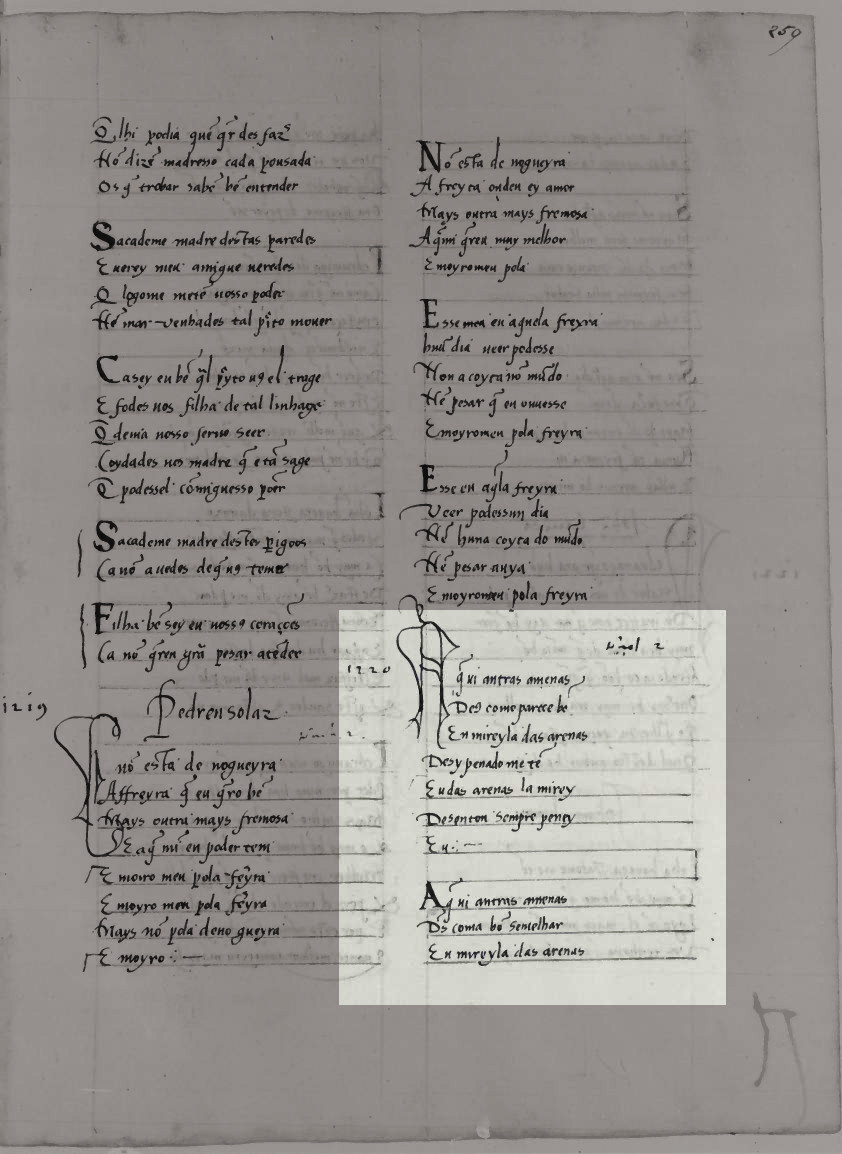 259
Q̃ lhi podia quẽ q̃r des faz̃
Nõ dizẽ madre no cada pousada
Os q̃ trobar sabẽ bẽ entender
Sacademe madre destas paredes
E uerey meu amigue ueredes
Q̃ logome metẽ uosso poder
Nẽ mar uenhades tal p̃ito mouer
Casey eu bẽ q̃l p̃yto uꝯ el trage
E sodes uos filha de tal linhage
Q̃ deuia uosso seruo seer
Coydades uos madre q̃ e tã sage
Q̃ podessel cõmiguesso poer
Sacademe madre destes p̃igoos
Ca nõ auedes de q̃ uꝯ temer
Filha bẽ sey eu uossꝯ corações
Ca nõ q̃ren grã pesar atẽder
1219
Pedrensolaz
Nõ esta de nogueyra
Affreyra q̃ eu q̃ro bẽ
Mays outra mays fremosa
E a q̃ mi en poder tem
E moiro meu pola freyra
E moyro meu pola freyra
Mays nõ pola de no gueyra
E moyro :—
Nõ esta de nogueyra
A freyra onden ey amor
Mays outra mays fremosa
Aq̃mi q̃reu muy melhor
E moyromeu pola
E sse mea eu aquela freyra
huũ dia ueer podesse
Non a coyta nõ mũdo
Nẽ pesar q̃ eu ouuesse
E moyromeu pola freyra
E sse eu aq̃la freyra
Ueer podessun dia
Nẽ huna coyta do mũdo
Nẽ pesar auya
E moyromeu pola freyra
1220
Aq̃ui antras amenas
Deꝯ como parece bẽ
E u mireyla das arenas
Desy penado me tẽ
Eu das arenas la mirey
Desenton sempre peney
Eu :—
Aq̃ui antras amenas
Dꝯ coma bõ semelhar
E u mireyla das arenas